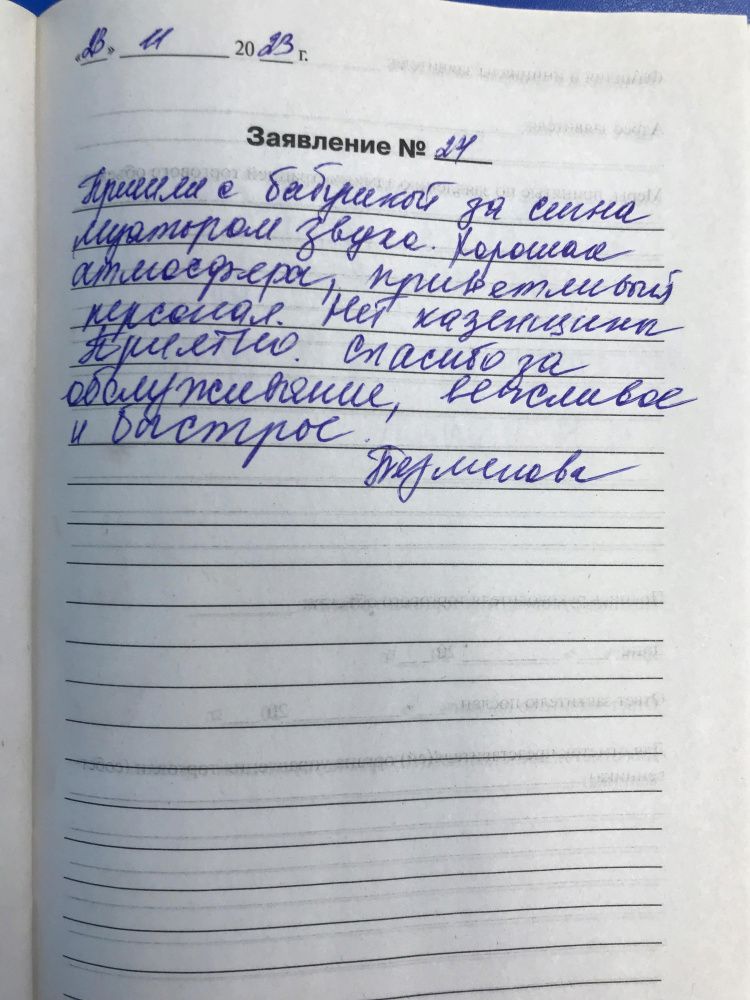 «23» 11 2023 г.
Заявление № 24
Пришли с бабушкой за сигна
муятором звука. Хорошая
атмосфера, приветливый
персонал. Нет казенщины
Приятно. Спасибо за
обслуживание, вежливое
и быстрое.